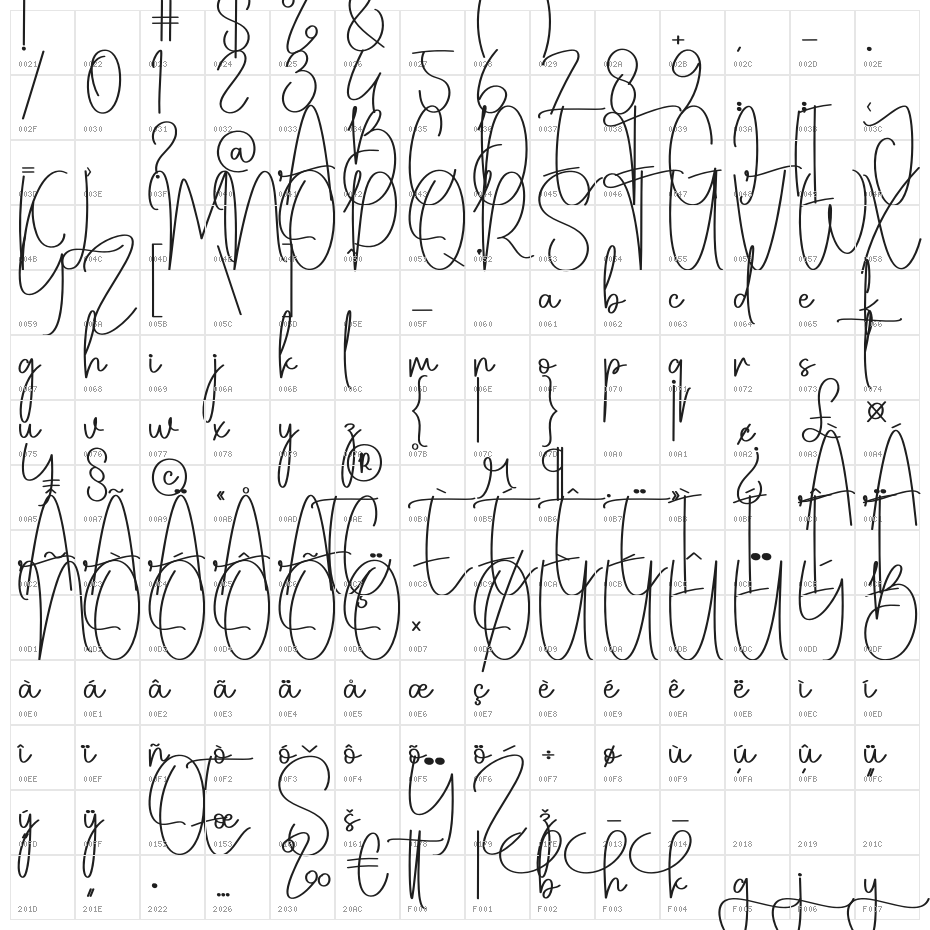 ! " # $ % & ' ( ) * + , - .
0021 0022 0023 0024 0025 0026 0027 0028 0029 002A 002B 002C 002D 002E
/ 0 1 2 3 4 5 6 7 8 9 : ; <
002F 0030 0031 0032 0033 0034 0035 0036 0037 0038 0039 003A 003B 003C
= > ? @ A B C D E F G H I J
003D 003E 003F 0040 0041 0042 0043 0044 0045 0046 0047 0048 0049 004A
K L M N O P Q R S T U V W X
004B 004C 004D 004E 004F 0050 0051 0052 0053 0054 0055 0056 0057 0058
Y Z [ \ ] ^ _ a b c d e f
0059 005A 005B 005C 005D 005E 005F 0060 0061 0062 0063 0064 0065 0066
g h i j k l m n o p q r s t
0067 0068 0069 006A 006B 006C 006D 006E 006F 0070 0071 0072 0073 0074
u v w x y z { | } ¡ ¢ £ ¤
0075 0076 0077 0078 0079 007A 007B 007C 007D 00A1 00A2 00A3 00A4
¥ § © « ® ° µ ¶ · » ¿ À Á
00A5 00A7 00A9 00AB 00AD 00AE 00B0 00B5 00B6 00B7 00BB 00BF 00C0 00C1
Â Ã Ä Å Æ Ç È É Ê Ë Ì Í Î Ï
00C2 00C3 00C4 00C5 00C6 00C7 00C8 00C9 00CA 00CB 00CC 00CD 00CE 00CF
Ñ Ò Ó Ô Õ Ö × Ø Ù Ú Û Ü Ý ß
00D1 00D2 00D3 00D4 00D5 00D6 00D7 00D8 00D9 00DA 00DB 00DC 00DD 00DF
à á â ã ä å æ ç è é ê ë ì í
00E0 00E1 00E2 00E3 00E4 00E5 00E6 00E7 00E8 00E9 00EA 00EB 00EC 00ED
î ï ñ ò ó ô õ ö ÷ ø ù ú û ü
00EE 00EF 00F1 00F2 00F3 00F4 00F5 00F6 00F7 00F8 00F9 00FA 00FB 00FC
ý ÿ Œ œ Š š Ÿ Ž ž
00FD 00FF 0152 0153 0160 0161 0178 017D 017E 2013 2014 2018 2019 201C
„ • … ‰ € b h k g j y
201D 201E 2022 2026 2030 20AC F000 F001 F002 F003 F004 F005 F006 F007